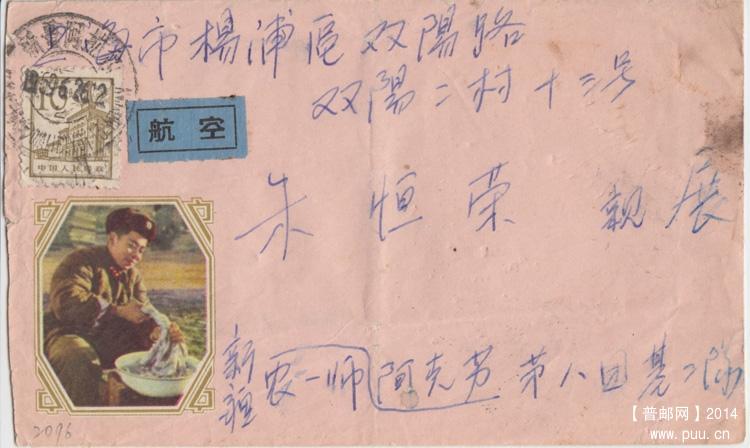 上海市楊浦區双陽路
双陽二村十三号
航空
中国人民邮政
朱恒荣 親展
新疆農一师阿克苏 第八团基二隊
2096
【普邮网】2014
www.puu.cn